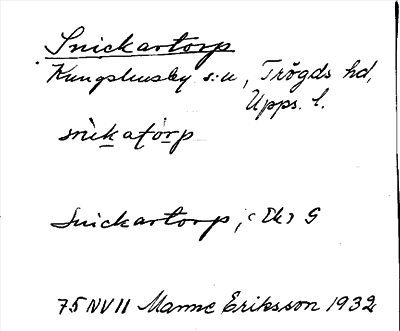 Snickartorp
Kungshusby s:n, Trögds hd,
Upps. l.
snìkatórp
Snickartorp, (Ek) G
75 NV II Manne Eriksson 1932